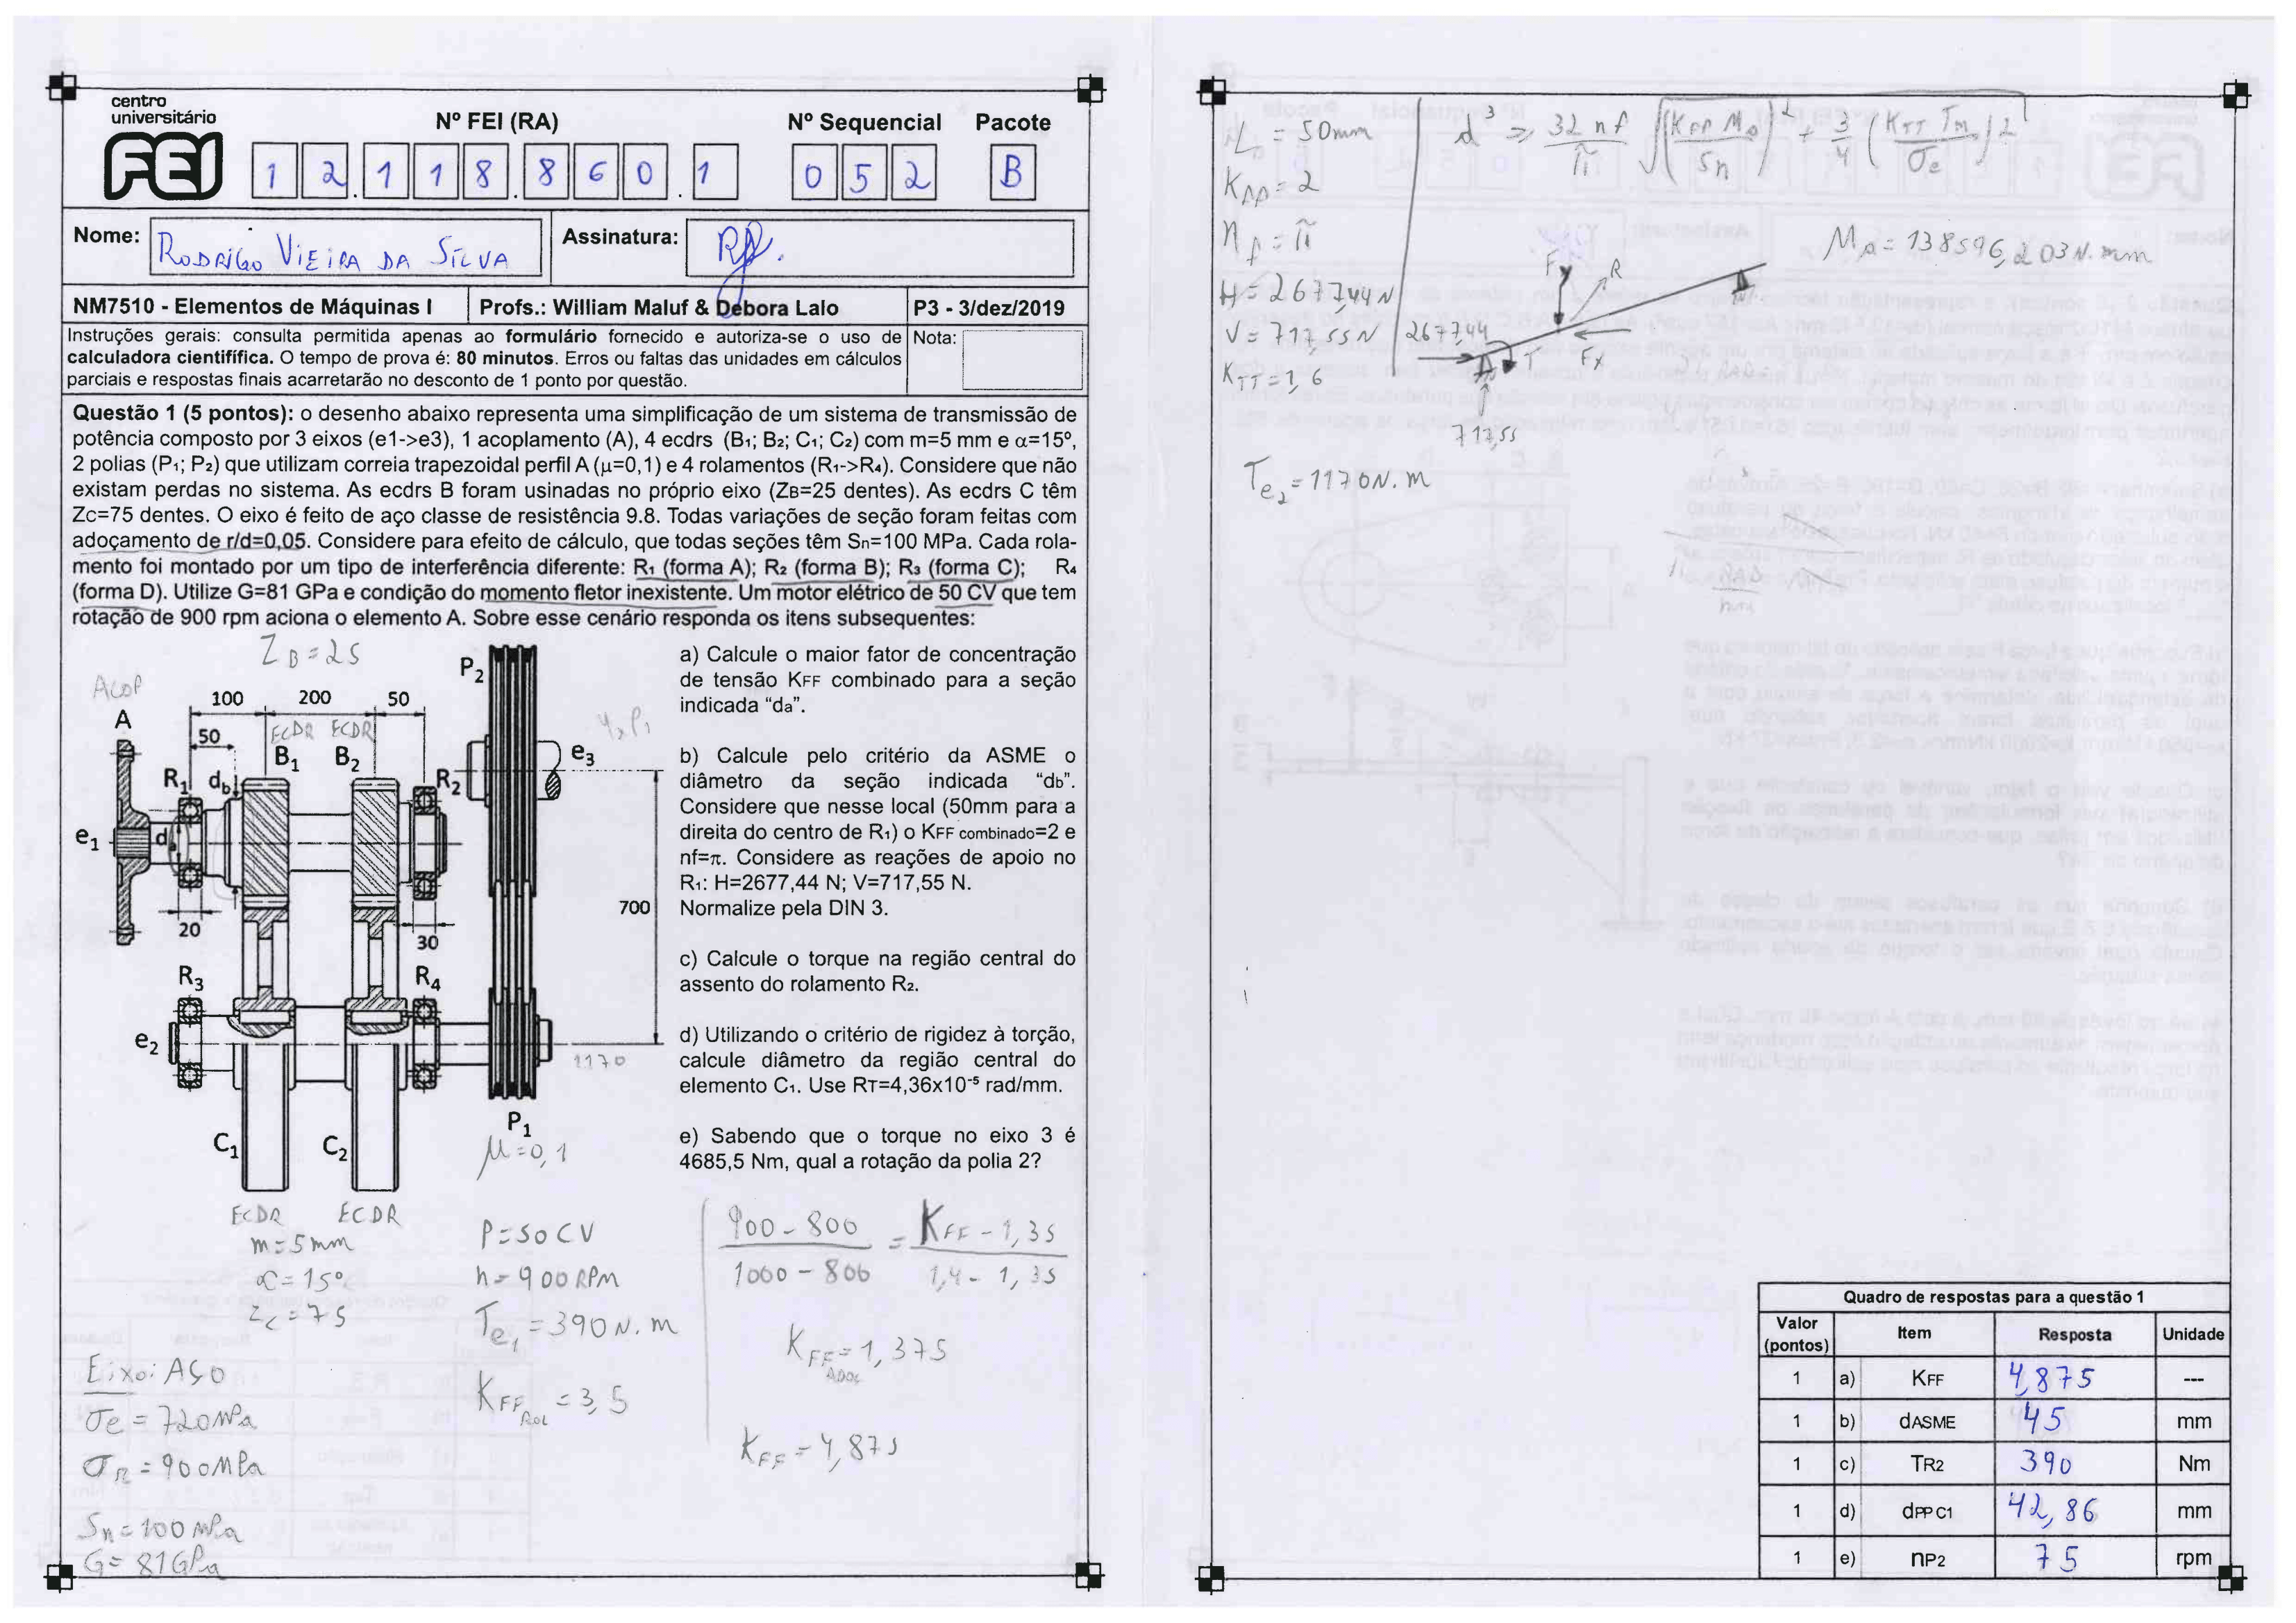 centro
universitário
FEI
Nº FEI (RA)
Nº Sequencial
Pacote
1 2.1 1 8.8 6 0.1
0 5 2
B
Nome: RODRIGO VIEIRA DA SILVA
Assinatura:
NM7510 - Elementos de Máquinas I
Profs.: William Maluf & Debora Lalo
P3 - 3/dez/2019
Instruções gerais: consulta permitida apenas ao formulário fornecido e autoriza-se o uso de
calculadora cientifífica. O tempo de prova é: 80 minutos. Erros ou faltas das unidades em cálculos
parciais e respostas finais acarretarão no desconto de 1 ponto por questão.
Nota:
Questão 1 (5 pontos): o desenho abaixo representa uma simplificação de um sistema de transmissão de
potência composto por 3 eixos (e1->e3), 1 acoplamento (A), 4 ecdrs (B1; B2; C1; C2) com m=5 mm e α=15º,
2 polias (P1; P2) que utilizam correia trapezoidal perfil A (μ=0,1) e 4 rolamentos (R1->R4). Considere que não
existam perdas no sistema. As ecdrs B foram usinadas no próprio eixo (ZB=25 dentes). As ecdrs C têm
Zc=75 dentes. O eixo é feito de aço classe de resistência 9.8. Todas variações de seção foram feitas com
adoçamento de r/d=0,05. Considere para efeito de cálculo, que todas seções têm Sn=100 MPa. Cada rola-
mento foi montado por um tipo de interferência diferente: R1 (forma A); R2 (forma B); R3 (forma C); R4
(forma D). Utilize G=81 GPa e condição do momento fletor inexistente. Um motor elétrico de 50 CV que tem
rotação de 900 rpm aciona o elemento A. Sobre esse cenário responda os itens subsequentes:
ZB=25
ACOP
A
100
200
50
50
ECDR
ECDR
B1
B2
R1
db
R2
P2
4xP1
e3
e1
da
20
30
700
R3
R4
e2
1170
C1
C2
P1
μ=0,1
ECDR
ECDR
m=5mm
α=15º
Zc=75
a) Calcule o maior fator de concentração
de tensão KFF combinado para a seção
indicada “da”.
b) Calcule pelo critério da ASME o
diâmetro da seção indicada “db”.
Considere que nesse local (50mm para a
direita do centro de R1) o KFF combinado=2 e
nf=π. Considere as reações de apoio no
R1: H=2677,44 N; V=717,55 N.
Normalize pela DIN 3.
c) Calcule o torque na região central do
assento do rolamento R2.
d) Utilizando o critério de rigidez à torção,
calcule diâmetro da região central do
elemento C1. Use RT=4,36x10-5 rad/mm.
e) Sabendo que o torque no eixo 3 é
4685,5 Nm, qual a rotação da polia 2?
P=50CV
n=900RPM
Te1=390N.m
KFF ROL =3,5
Eixo: AÇO
σe=720MPa
σR=900MPa
Sn=100MPa
G=81GPa
900-800/1000-800 = KFF-1,35/1,4-1,35
KFF ADOC=1,375
KFF=4,875
L=50mm
KFF=2
nf=π
H=2677,44N
V=717,55N
KTT=1,6
d³ ≥ 32 nf/π √(KFF Ma/Sn)² + 3/4 (KTT Tm/σe)²
Ma=138596,203N.mm
Fy
R
2677,44
T
Fx
717,55
Te2=1170N.m
Quadro de respostas para a questão 1
Valor (pontos) Item Resposta Unidade
1 a) KFF 4,875 ---
1 b) dASME 45 mm
1 c) TR2 390 Nm
1 d) dPP C1 42,86 mm
1 e) nP2 75 rpm